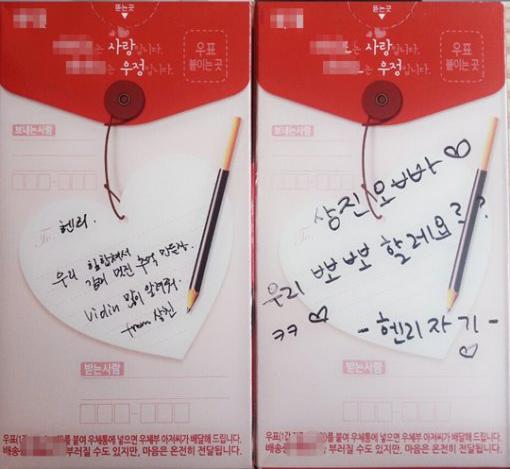 뜯는곳
는 사랑입니다.
는 우정입니다.
우표
붙이는 곳
보내는사람
To.
헨리.
우리 힘합쳐서
같이 멋진 추억 만든장.
violin 많이 알려줘.
from 상진
받는사람
우표(1간 )를 붙여 우체통에 넣으면 우체부 아저씨가 배달해 드립니다.
배송 부러질 수도 있지만, 마음은 온전히 전달됩니다.
뜯는곳
는 사랑입니다.
는 우정입니다.
우표
붙이는 곳
보내는사람
상진오빠 ♡
우리 뽀뽀할레요르?
ㅋㅋ ♡
-헨리자기-
♡
받는사람
우표(1간 )를 붙여 우체통에 넣으면 우체부 아저씨가 배달해 드립니다.
배송 부러질 수도 있지만, 마음은 온전히 전달됩니다.